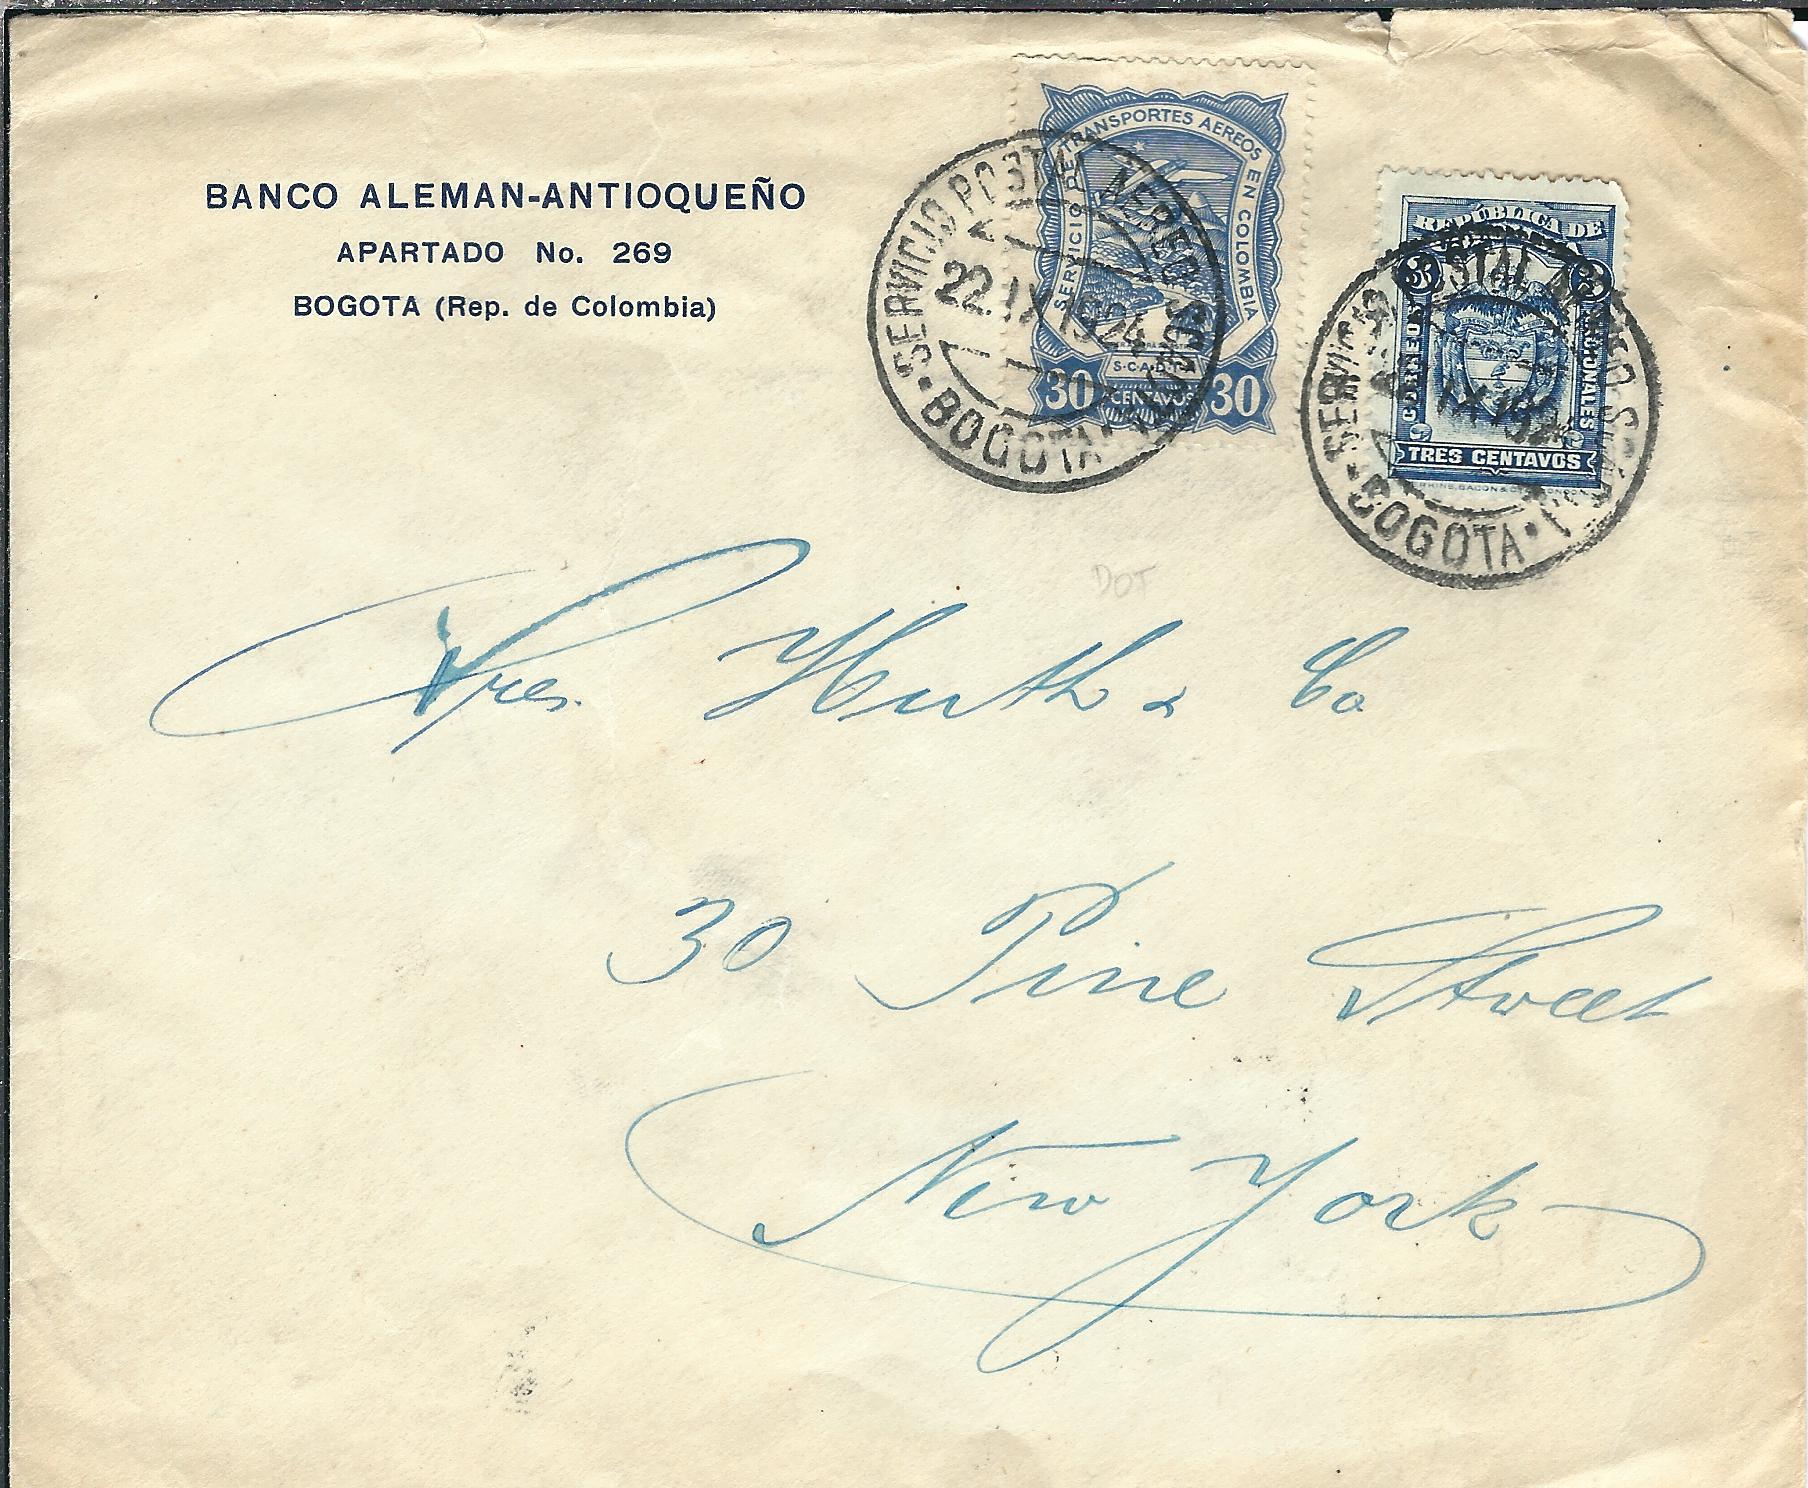 BANCO ALEMAN-ANTIOQUEÑO
APARTADO No. 269
BOGOTA (Rep. de Colombia)
SERVICIO DE TRANSPORTES AEREOS EN COLOMBIA
S.C.A.D.T.A.
30 CENTAVOS 30
SERVICIO POSTAL AEREO
22.IX.1924
BOGOTA
REPÚBLICA DE COLOMBIA
3 3
CORREOS NACIONALES
TRES CENTAVOS
PERKINS, BACON & CO. LONDON
SERVICIO POSTAL AEREO
IX 192
BOGOTA
DOT
Sres. Huth & Co
30 Pine Street
New York